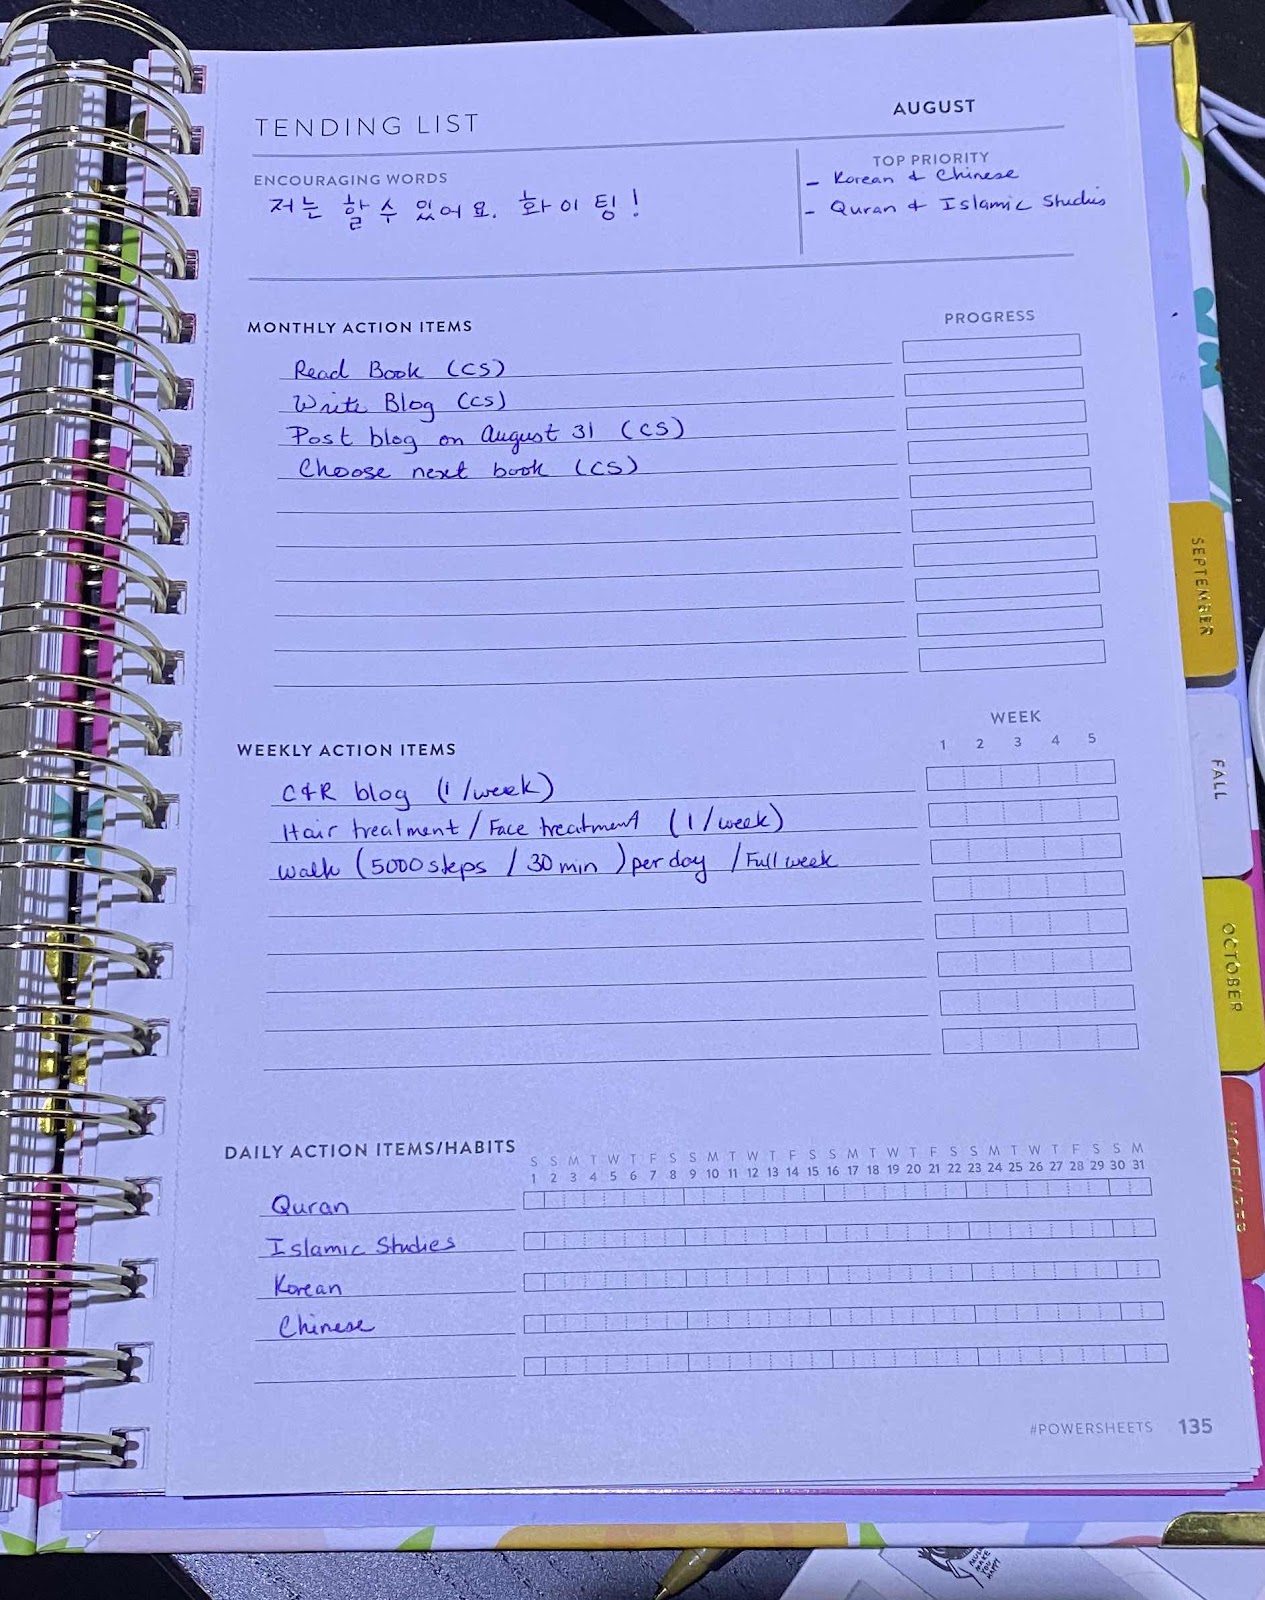 TENDING LIST
AUGUST
ENCOURAGING WORDS
저는 할 수 있어요. 화이팅!
TOP PRIORITY
- Korean & Chinese
- Quran & Islamic Studies
MONTHLY ACTION ITEMS
PROGRESS
Read Book (CS)
Write Blog (CS)
Post blog on August 31 (CS)
Choose next book (CS)
WEEKLY ACTION ITEMS
WEEK
1 2 3 4 5
C&R blog (1/week)
Hair treatment/Face treatment (1/week)
Walk (5000 steps / 30 min) per day / Full week
DAILY ACTION ITEMS/HABITS
S S M T W T F S S M T W T F S S M T W T F S S M T W T F S S M
1 2 3 4 5 6 7 8 9 10 11 12 13 14 15 16 17 18 19 20 21 22 23 24 25 26 27 28 29 30 31
Quran
Islamic Studies
Korean
Chinese
#POWERSHEETS 135
SEPTEMBER
FALL
OCTOBER
NOVEMBER
MAKE
YOU
HAPPY